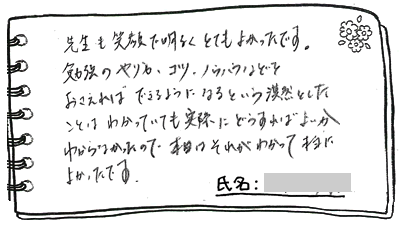 先生も笑顔で明るくとてもよかったです。
勉強のやり方、コツ、ノウハウなどを
おさえればできるようになるという漠然とした
ことはわかっていても実際にどうすればよいか
わからなかったので本日はそれがわかって本当に
よかったです。
氏名: